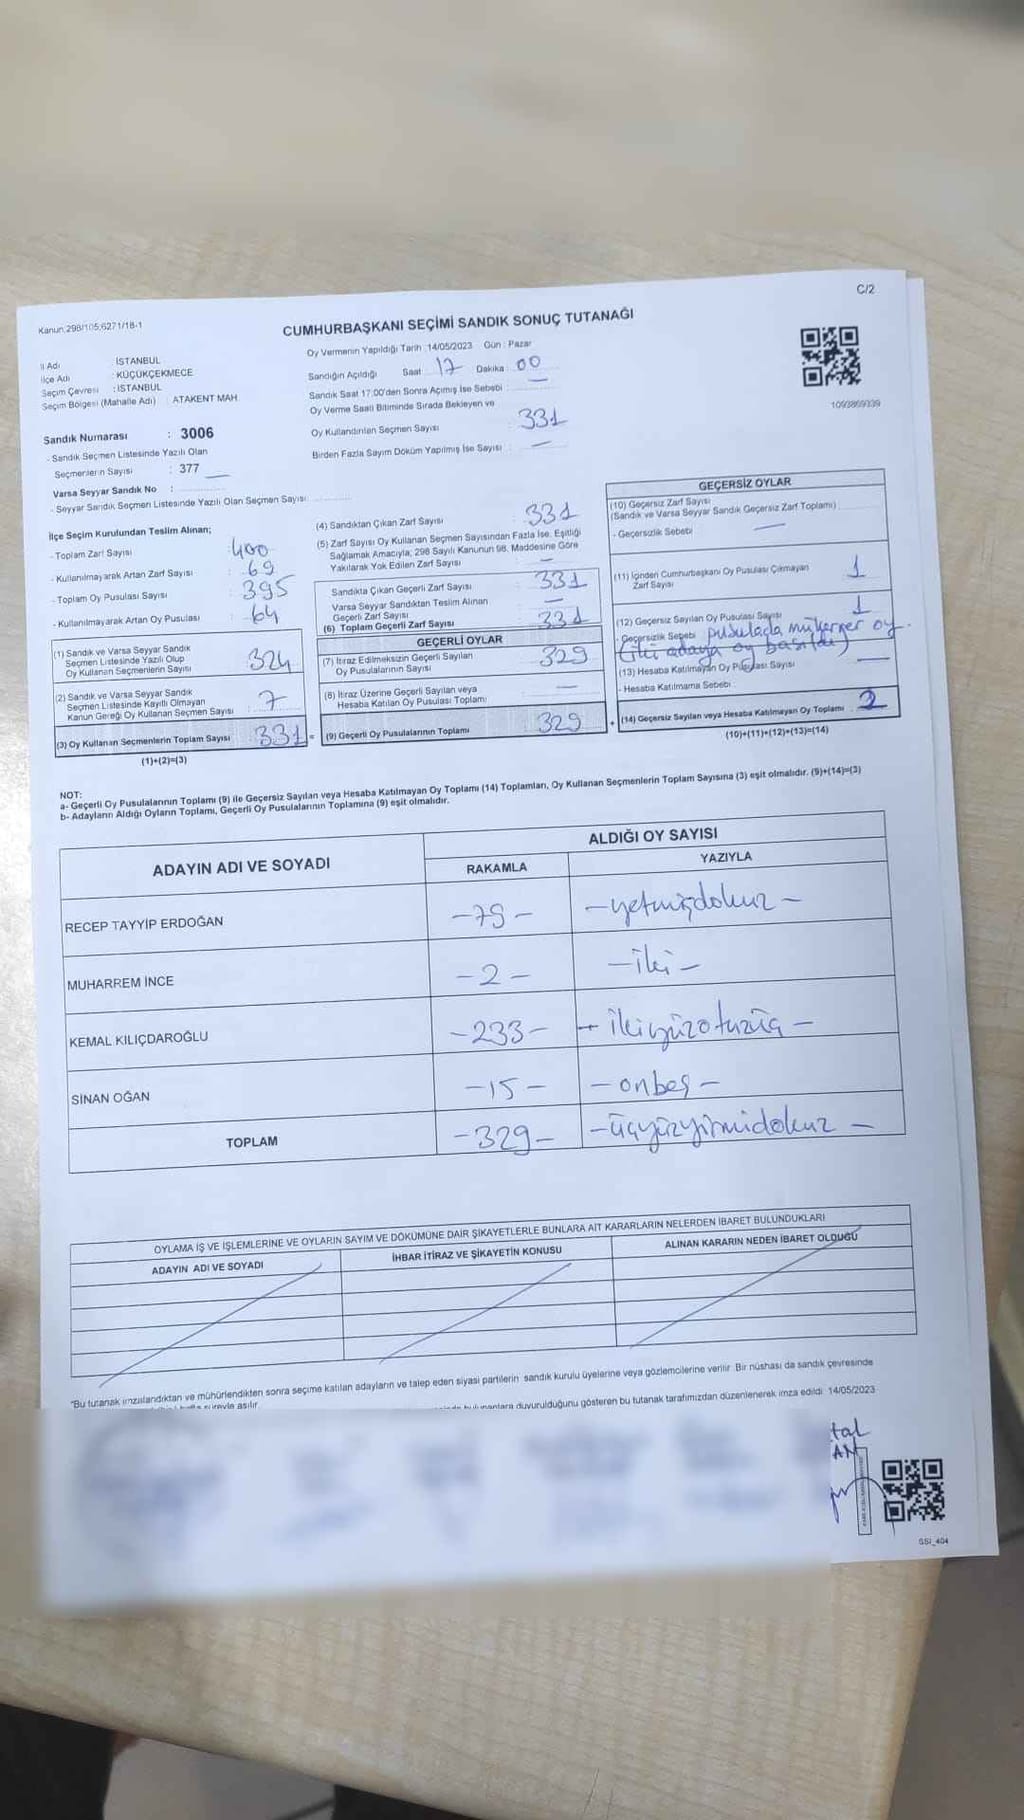 C/2
Kanun;298/105;6271/18-1
CUMHURBAŞKANI SEÇİMİ SANDIK SONUÇ TUTANAĞI
İl Adı : İSTANBUL
İlçe Adı : KÜÇÜKÇEKMECE
Seçim Çevresi : İSTANBUL
Seçim Bölgesi (Mahalle Adı) : ATAKENT MAH.
Sandık Numarası : 3006
- Sandık Seçmen Listesinde Yazılı Olan
Seçmenlerin Sayısı : 377
Varsa Seyyar Sandık No :
- Seyyar Sandık Seçmen Listesinde Yazılı Olan Seçmen Sayısı
Oy Vermenin Yapıldığı Tarih :14/05/2023 Gün : Pazar
Sandığın Açıldığı Saat 17 Dakika 00
Sandık Saat 17:00'den Sonra Açılmış İse Sebebi : —
Oy Verme Saati Bitiminde Sırada Bekleyen ve
Oy Kullandırılan Seçmen Sayısı : 331
Birden Fazla Sayım Döküm Yapılmış İse Sayısı : —
1093869339
İlçe Seçim Kurulundan Teslim Alınan;
- Toplam Zarf Sayısı : 400
- Kullanılmayarak Artan Zarf Sayısı : 69
- Toplam Oy Pusulası Sayısı : 395
- Kullanılmayarak Artan Oy Pusulası : 64
(1) Sandık ve Varsa Seyyar Sandık
Seçmen Listesinde Yazılı Olup
Oy Kullanan Seçmenlerin Sayısı 324
(2) Sandık ve Varsa Seyyar Sandık
Seçmen Listesinde Kayıtlı Olmayan
Kanun Gereği Oy Kullanan Seçmen Sayısı 7
(3) Oy Kullanan Seçmenlerin Toplam Sayısı 331 =
(1)+(2)=(3)
(4) Sandıktan Çıkan Zarf Sayısı : 331
(5) Zarf Sayısı Oy Kullanan Seçmen Sayısından Fazla İse, Eşitliği
Sağlamak Amacıyla; 298 Sayılı Kanunun 98. Maddesine Göre
Yakılarak Yok Edilen Zarf Sayısı : —
Sandıkta Çıkan Geçerli Zarf Sayısı 331
Varsa Seyyar Sandıktan Teslim Alınan
Geçerli Zarf Sayısı —
(6) Toplam Geçerli Zarf Sayısı 331
GEÇERLİ OYLAR
(7) İtiraz Edilmeksizin Geçerli Sayılan
Oy Pusulalarının Sayısı 329
(8) İtiraz Üzerine Geçerli Sayılan veya
Hesaba Katılan Oy Pusulası Toplamı —
(9) Geçerli Oy Pusulalarının Toplamı 329 +
GEÇERSİZ OYLAR
(10) Geçersiz Zarf Sayısı
(Sandık ve Varsa Seyyar Sandık Geçersiz Zarf Toplamı)
- Geçersizlik Sebebi —
(11) İçinden Cumhurbaşkanı Oy Pusulası Çıkmayan
Zarf Sayısı 1
(12) Geçersiz Sayılan Oy Pusulası Sayısı 1
- Geçersizlik Sebebi pusulada mükerrer oy.
(iki adaya oy basıldı)
(13) Hesaba Katılmayan Oy Pusulası Sayısı —
- Hesaba Katılmama Sebebi :
(14) Geçersiz Sayılan veya Hesaba Katılmayan Oy Toplamı 2
(10)+(11)+(12)+(13)=(14)
NOT:
a- Geçerli Oy Pusulalarının Toplamı (9) ile Geçersiz Sayılan veya Hesaba Katılmayan Oy Toplamı (14) Toplamları, Oy Kullanan Seçmenlerin Toplam Sayısına (3) eşit olmalıdır. (9)+(14)=(3)
b- Adayların Aldığı Oyların Toplamı, Geçerli Oy Pusulalarının Toplamına (9) eşit olmalıdır.
ADAYIN ADI VE SOYADI
ALDIĞI OY SAYISI
RAKAMLA YAZIYLA
RECEP TAYYİP ERDOĞAN -79- -yetmişdokuz-
MUHARREM İNCE -2- -iki-
KEMAL KILIÇDAROĞLU -233- -ikiyüzotuzüç-
SİNAN OĞAN -15- -onbeş-
TOPLAM -329- -üçyüzyirmidokuz-
OYLAMA İŞ VE İŞLEMLERİNE VE OYLARIN SAYIM VE DÖKÜMÜNE DAİR ŞİKAYETLERLE BUNLARA AİT KARARLARIN NELERDEN İBARET BULUNDUKLARI
ADAYIN ADI VE SOYADI İHBAR İTİRAZ VE ŞİKAYETİN KONUSU ALINAN KARARIN NEDEN İBARET OLDUĞU
"Bu tutanak imzalandıktan ve mühürlendikten sonra seçime katılan adayların ve talep eden siyasi partilerin sandık kurulu üyelerine veya gözlemcilerine verilir. Bir nüshası da sandık çevresinde
süreyle asılır. bulunanlara duyurulduğunu gösteren bu tutanak tarafımızdan düzenlenerek imza edildi. 14/05/2023
tal
AN
SSİ_404